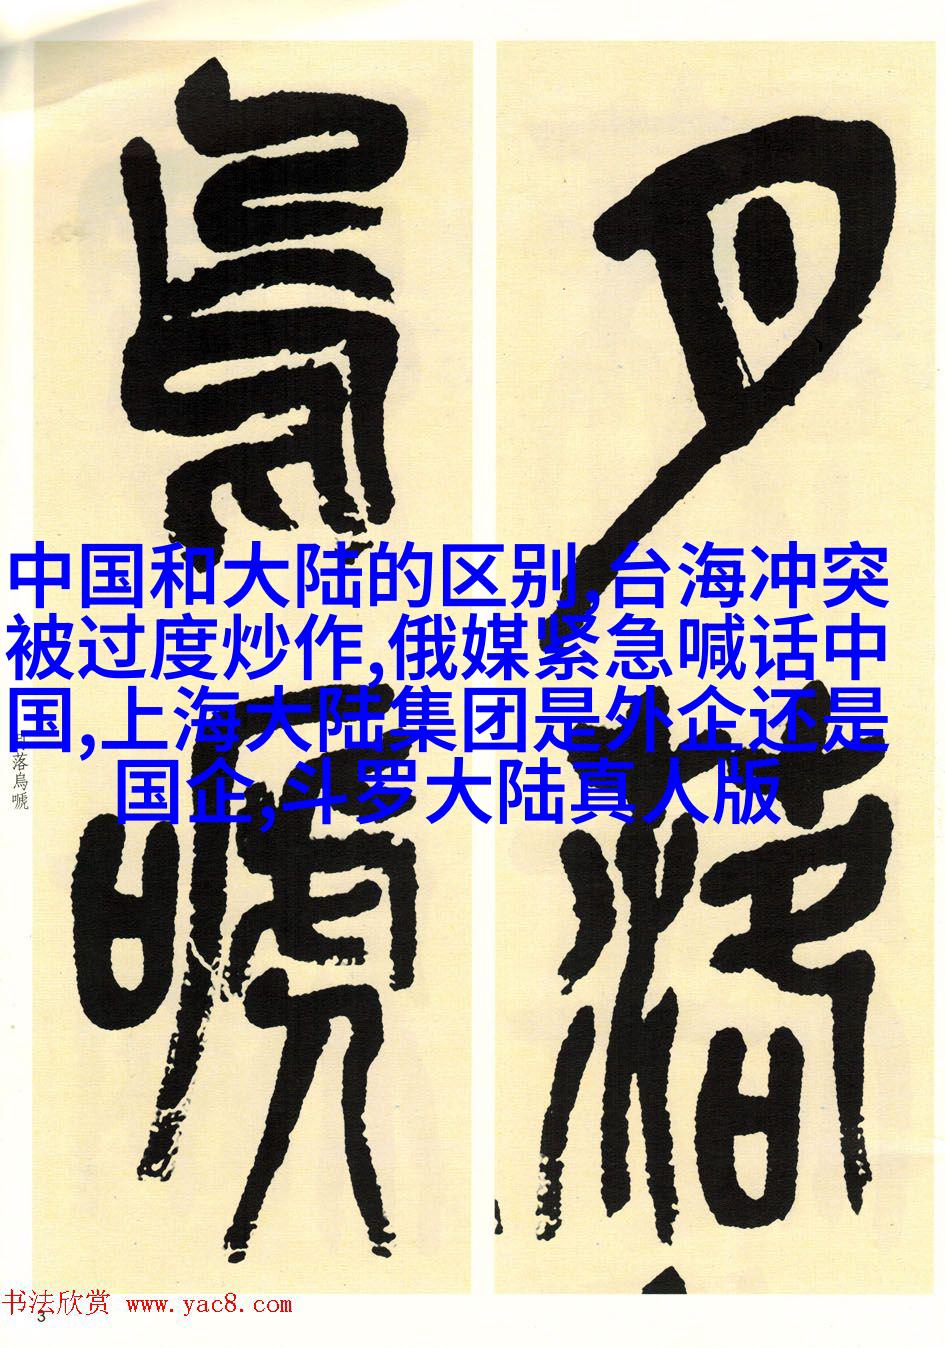 月落
烏嗁
中国和大陆的区别,台海冲突
被过度炒作,俄媒紧急喊话中
国,上海大陆集团是外企还是
国企,斗罗大陆真人版
月落烏嗁
书法欣赏 www.yac8.com
3